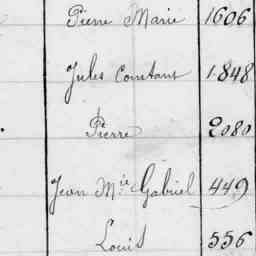 Pierre Marie 1606
Jules Constant 1848
Pierre 2080
Jean M.ie Gabriel 449
Louis 556